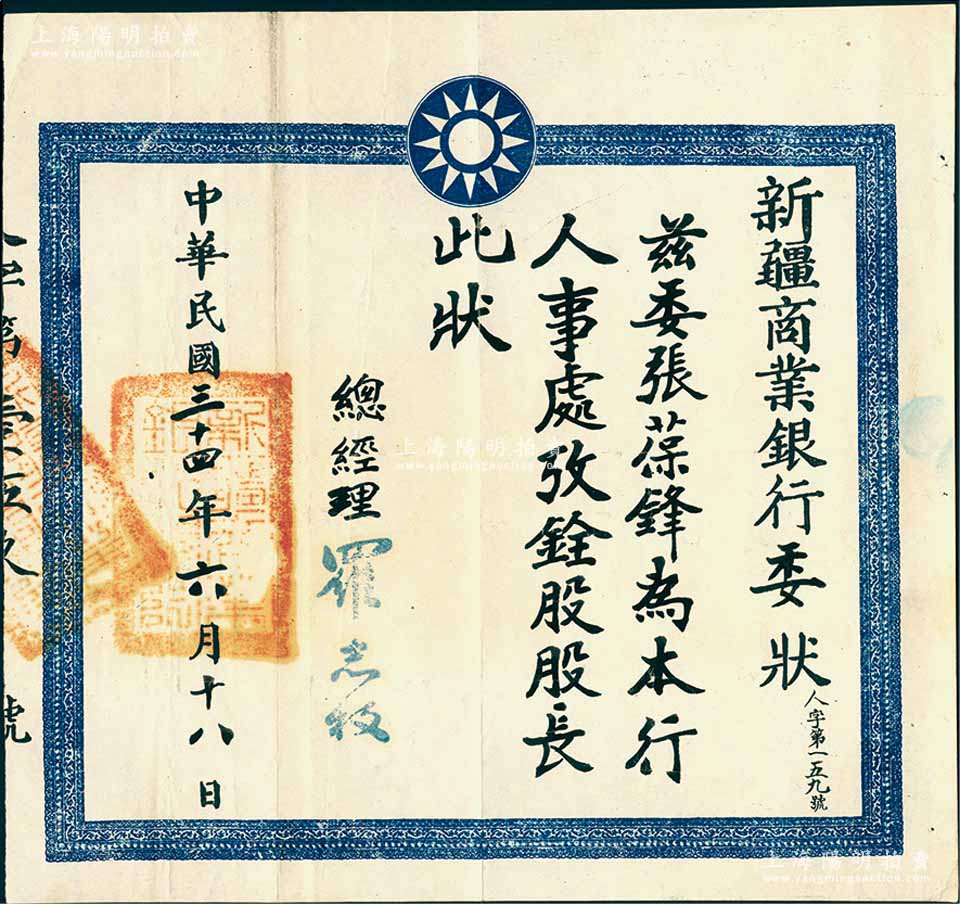 新疆商業銀行委狀
人字第一五九號
茲委張葆鋒為本行
人事處攷銓股股長
此狀
總經理
中華民國三十四年六月十八日
號
上海陽明拍賣
www.yangmingauction.com
上海陽明拍賣
www.yangmingauction.com
上海陽明拍賣
www.yangmingauction.com